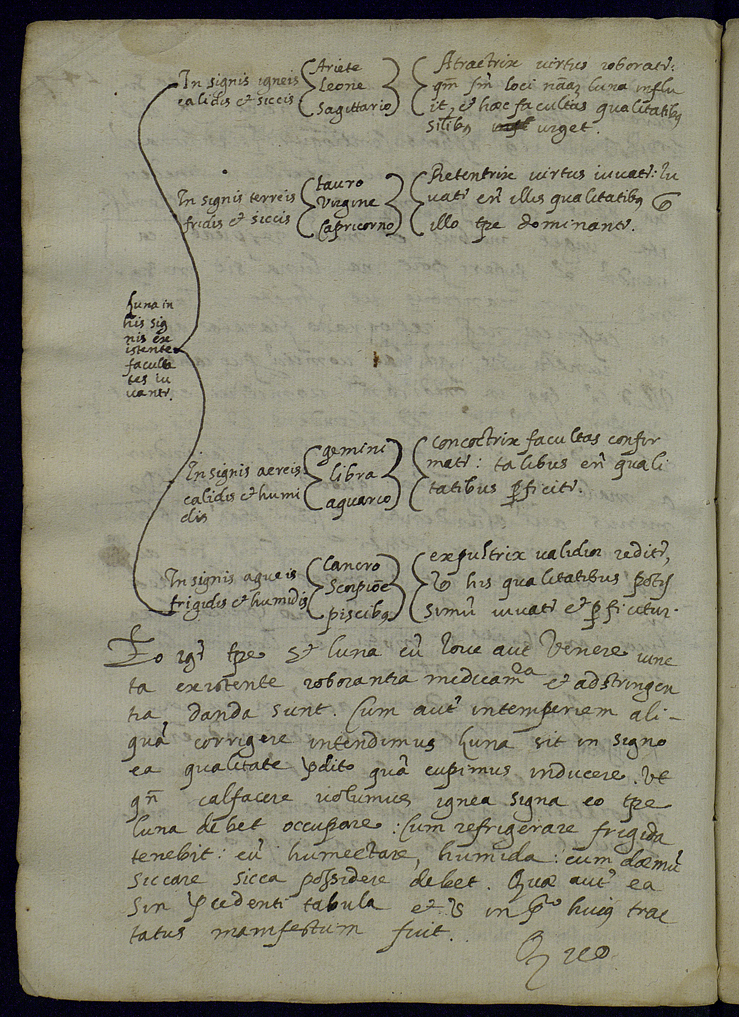 In signis igneis
calidis et siccis
Ariete
Leone
Sagittario
Atractrix virtus roborat.r:
qm̃ sm̃ loci nãz luna influ
it, et hæc facultas qualitatibꝰ
silibꝰ urget.
In signis terreis
fridis et siccis
tauro
Virgine
Capricorno
Retentrix virtus iuvat.r: Iu
vat.r en̄ illis qualitatibꝰ
illo tp̄e dominant.r.
Luna in
his sig
nis exi
istente
faculta
tes iu
vant.r.
In signis aereis
calidis et humi
dis
gemini
libra
aquario
Concoctrix facultas confir
mat.r: talibus en̄ quali
tatibus ꝑficit.r.
In signis aqueis
frigidis et humidis
Cancro
Scorpiõe
piscibꝰ
expultrix validior reddit.r,
his qualitatibus potis
simũ iuvat.r et ꝑficitur.
Eo ig.r tp̄e et luna cũ Iove aut Venere iunc
ta existente roborantia medicam.ta et adstringen
tia, danda sunt. Cum aut.̃ intemperiem ali-
quã corrigere intendimus luna sit in signo
ea qualitate p̄dito quã cupimus inducere. Ut
qñ calfacere volumus ignea signa eo tp̄e
luna debet occupare: Cum refrigerare frigida
tenebit: cũ humectare, humida: cum dæmũ
siccare sicca possidere debet. Quæ aut.̃ ea
sin p̄cedenti tabula et in p.o huiꝰ trac
tatus manifestum fuit.